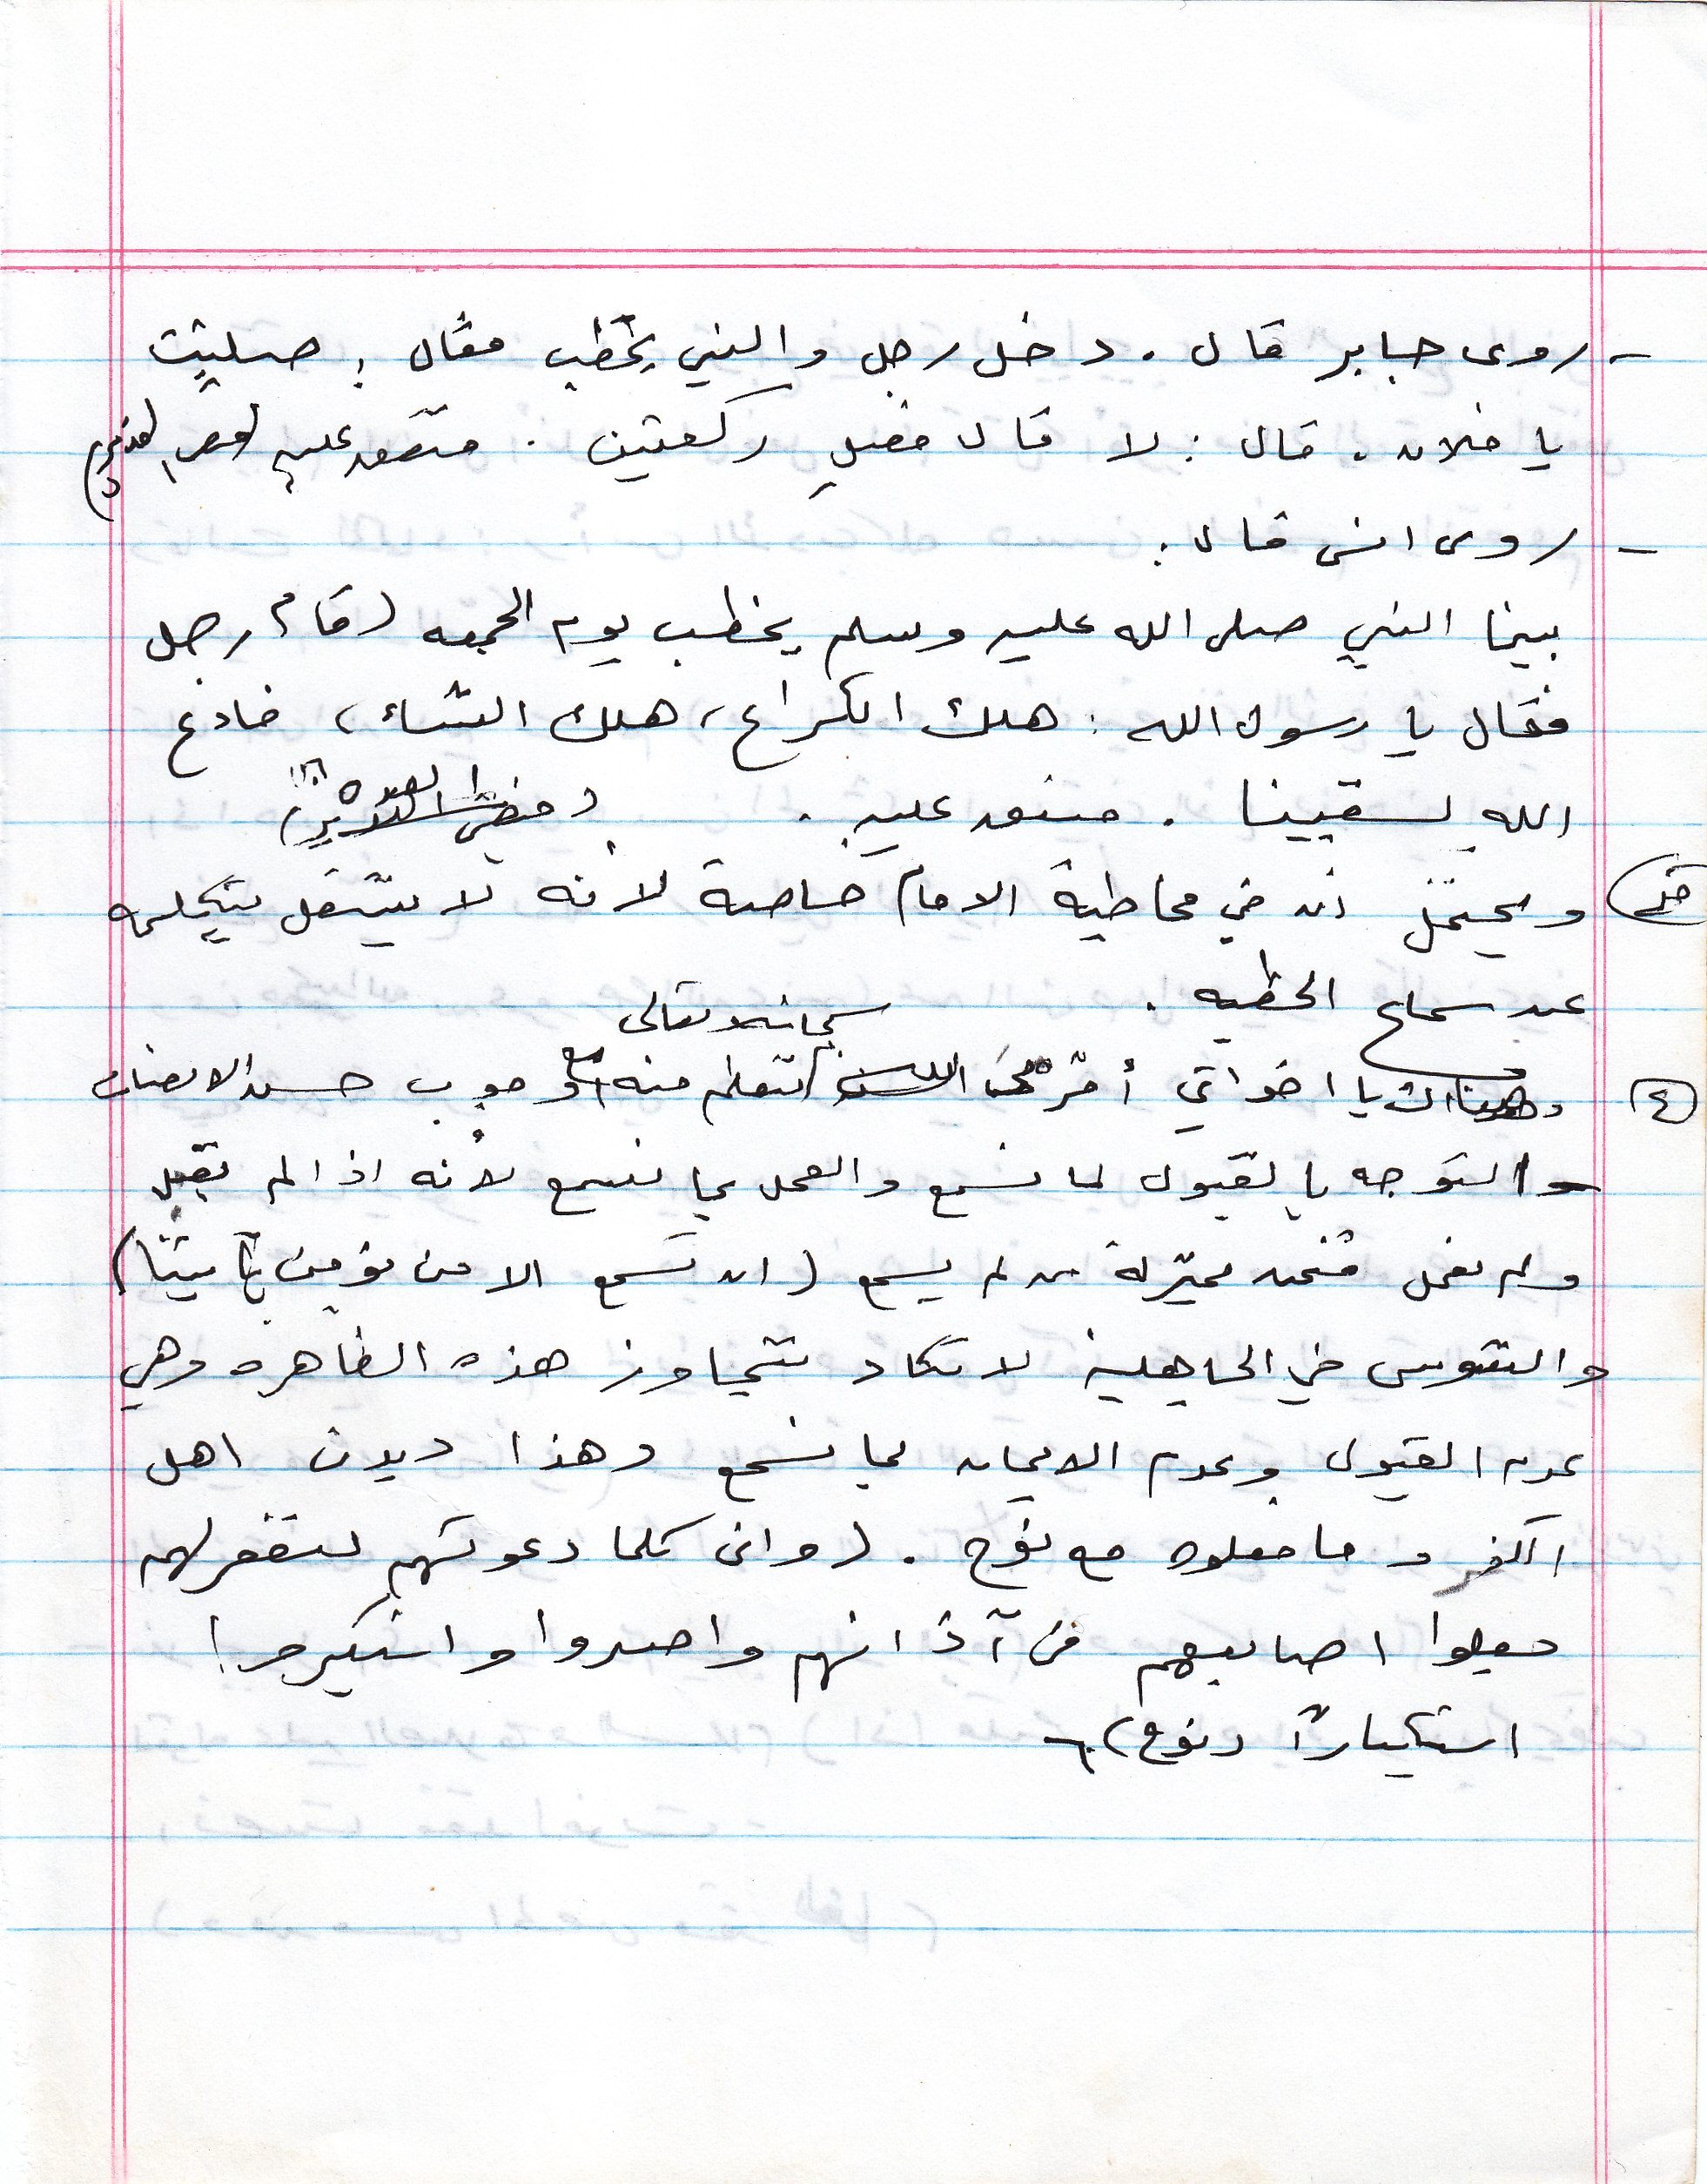 - روى جابر قال . دخل رجل والنبي يخطب فقال : صليت
يا فلان . قال : لا قال فصلِ ركعتين . متفق عليه
- روى انس قال :
بينما النبي صلى الله عليه وسلم يخطب يوم الجمعه (قام رجل
فقال يا رسول الله : هلك الكراع، هلك الشاء، فادع
الله يسقينا . متفق عليه .
ويحتمل ان في مخاطبة الامام خاصة لانه لا يشتغل بتكليمه
عن سماع الخطبه .
سبحانه وتعالى
(٤) وهناك يا اخواتي أمر نتعلم منه وجوب حسن الانصات
والتوجه بالقبول لما نسمع والعمل بما نسمع لأنه اذا لم نقبل
ولم نعمل فنحن بمنزلة من لم يسمع (ان تسمع الا من يؤمن بآياتنا)
والنفوس في الجاهلية لا تكاد تتجاوز هذه الظاهره وهي
عدم القبول وعدم الايمان لما نسمع وهذا ديدن اهل
الكفر و ما فعلوه مع نوح . (واني كلما دعوتهم لتغفر لهم
جعلوا اصابعهم في آذانهم واصروا واستكبروا
استكباراً (نوح)